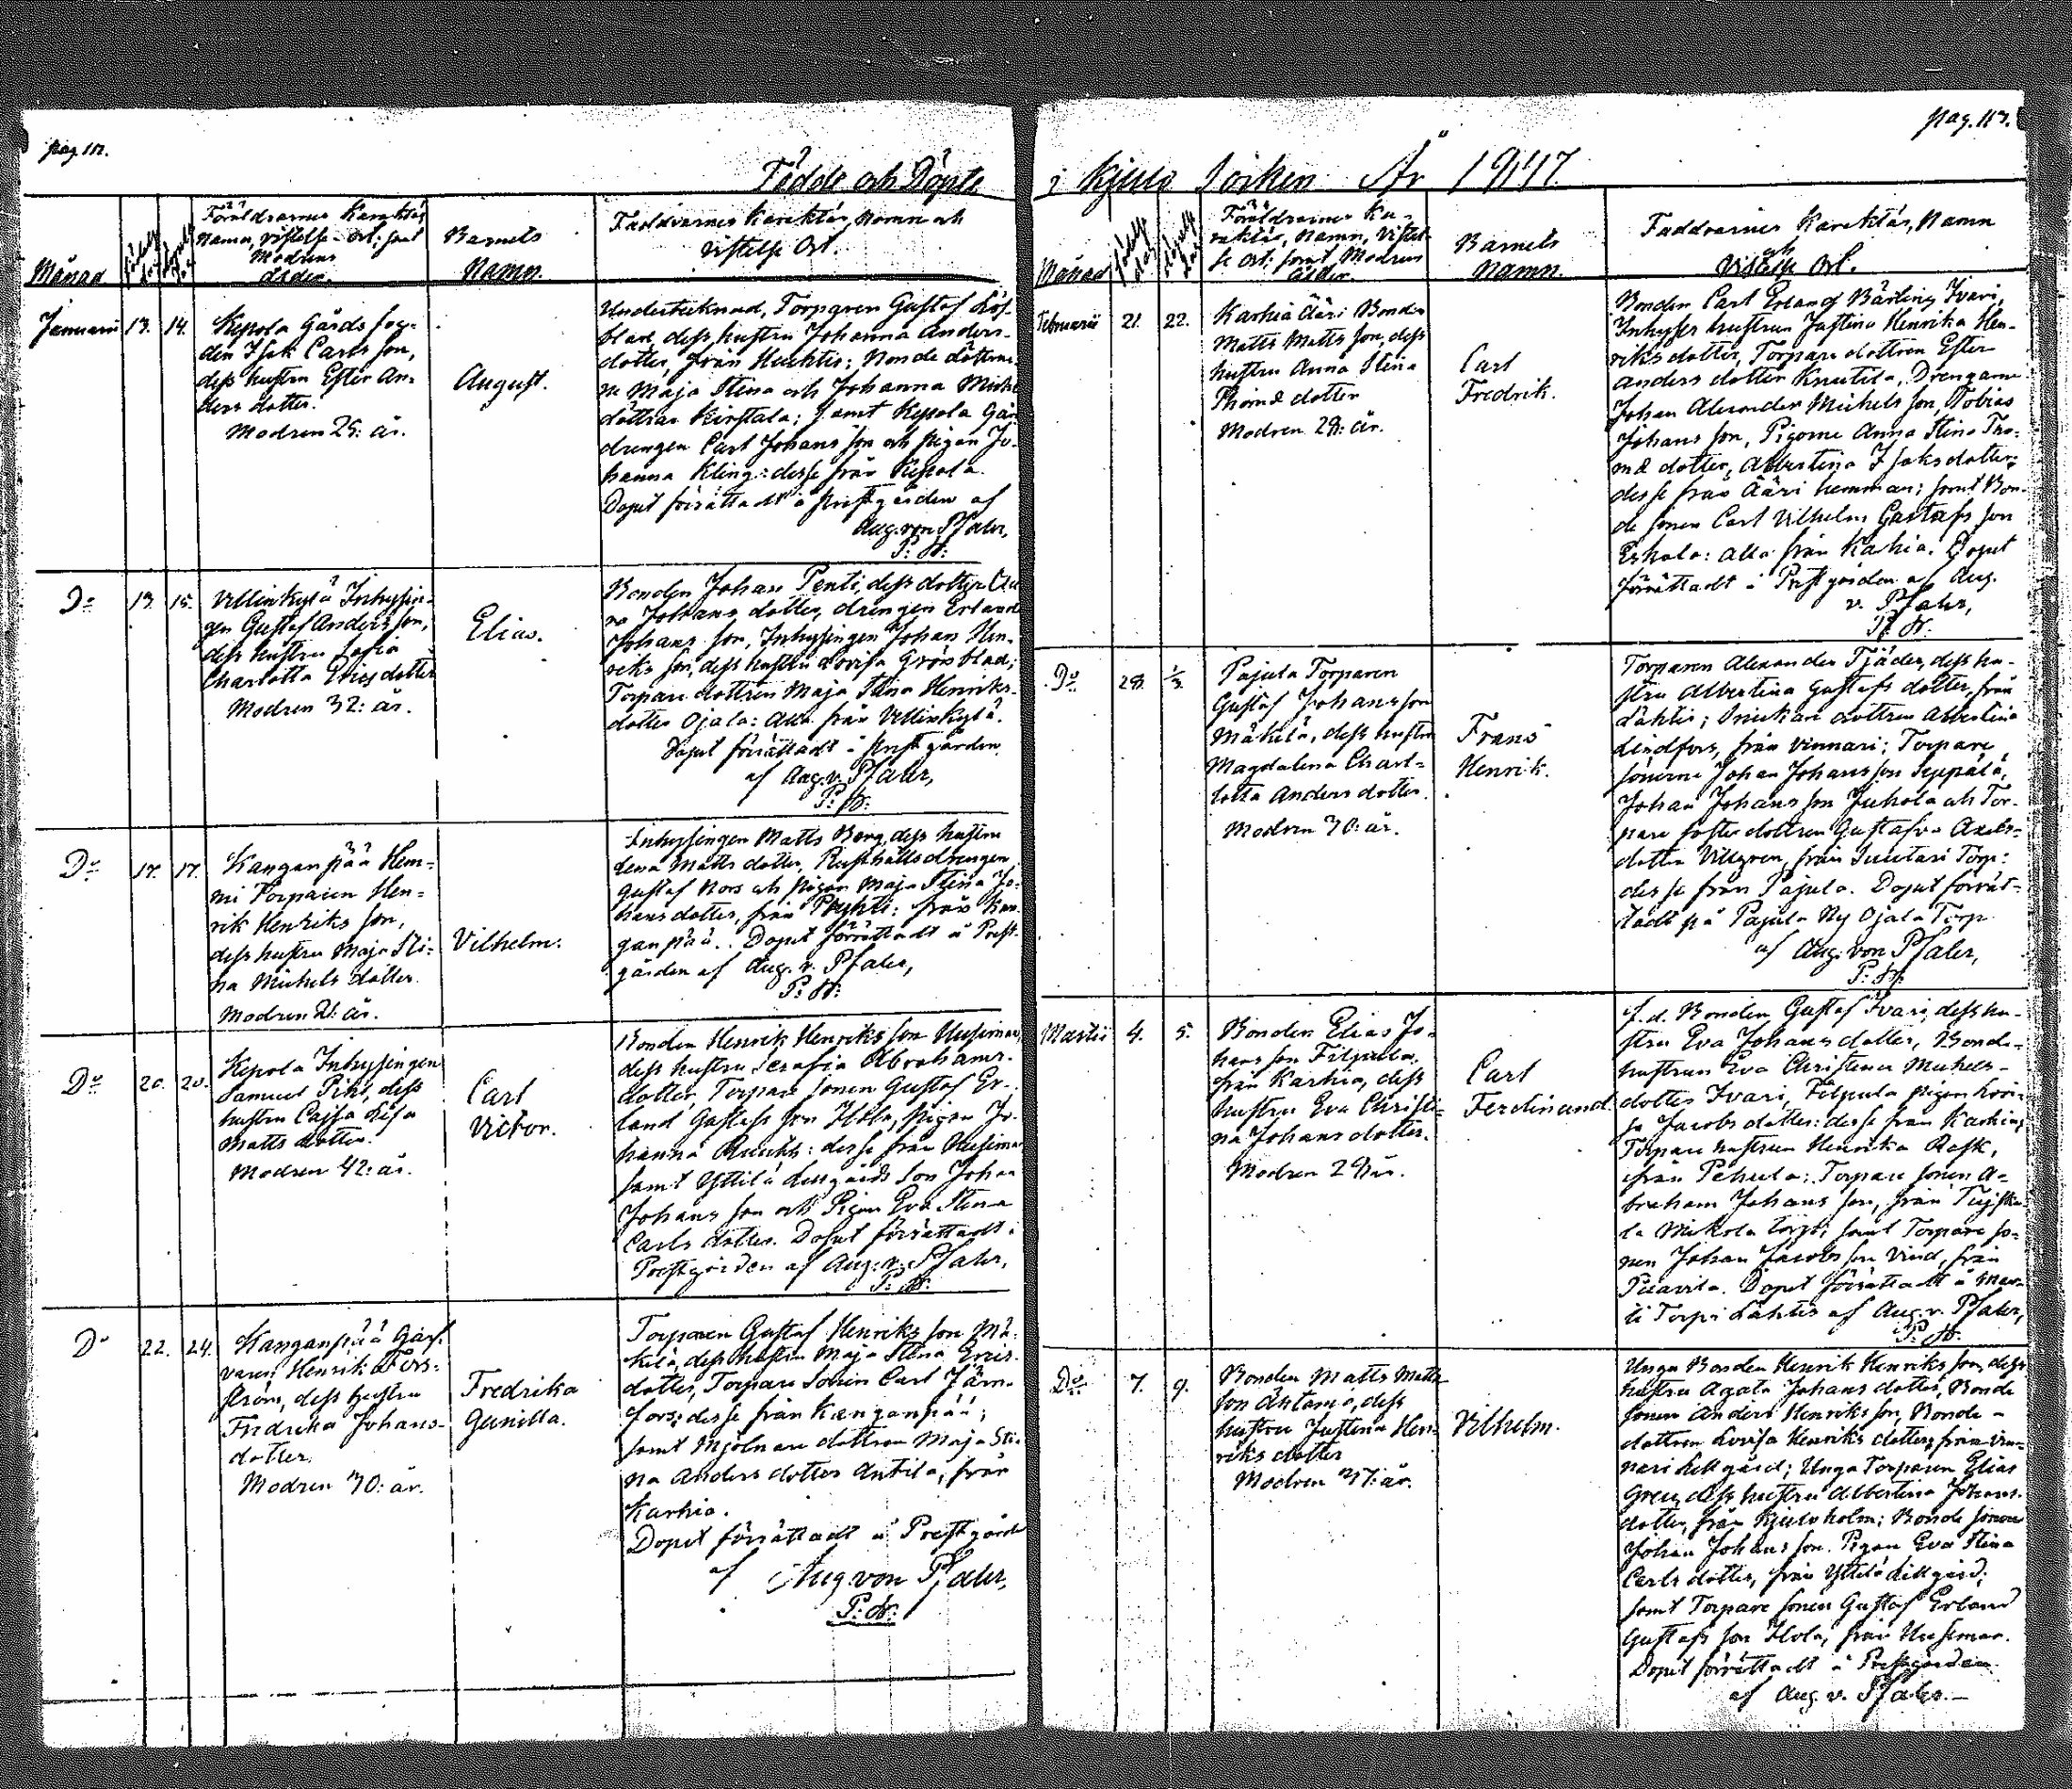 pag. 112.
Födde och Döpte
Månad
Föräldrarnes Karaktär,
Namn, vistelse-Ort; samt
Modrens
ålder.
Barnets
Namn.
Faddrarnes Karaktär, Namn och
vistelse Ort.
Januarii 13. 14.
Kepola Gårds fog-
den Isak Carls son,
dess hustru Ester An-
ders dotter.
Modren 25: år.
August.
Undertecknad, Torparen Gustaf Löf-
blad, dess hustru Johanna Anders-
dotter, från Huchtis; Bonde döttrar-
ne Maja Stina och Johanna Michels
döttrar Kirstala; samt Kepola Går
drengen Carl Johans son och pigan Jo-
hanna Kling: desse från Kepola.
Dopet förrättadt i Prestgården af
Aug. von Pfaler,
Do 13. 15.
Vellinkylä Inhysin-
gen Gustaf Anders son,
dess hustru Sofia
Charlotta Ericsdotter
Modren 32: år.
Elias.
Bonden Johan Penti, dess dotter
Johans dotter, drengen Erland
Johans son, Inhysingen Johan Hen-
riks son, dess hustru Lovisa Grönblad;
Torpare dottren Maja Stina Henriks-
dotter Ojala: alla från Vellinkylä.
Dopet förrättadt i Prestgården
af Aug. v. Pfaler,
Do 17. 17.
Kanganpää Hem-
mi Torparen Hen-
rik Henriks son,
dess hustru Maja Sti-
na Michels dotter.
Modren 21: år.
Vilhelm.
Inhysingen Matts Berg, dess hustru
Lena Matts dotter, Rusthållsdrengen
Gustaf Nors och pigan Maja Stina Jo-
hans dotter, från : från Kan-
ganpää. Dopet förrättadt i Prest-
gården af Aug. v. Pfaler,
Do 20. 20.
Kepola Inhysingen
Samuel Pihl, dess
hustru Cajsa Lisa
Matts dotter.
Modren 42: år.
Carl
Victor.
Bonden Henrik Henriks son Uusimaa,
dess hustru Serafia Abrahams-
dotter, Torpare sonen Gustaf Er-
land Gustafs son Ylola, pigan Jo-
hanna : desse från Uusimaa
samt Yttilä Lillgårds Son Johan
Johans son och Pigan Eva Stina
Carls dotter. Dopet förrättadt i
Prestgården af Aug. v. Pfaler,
Do 22. 24.
Kanganpää Garf-
varen Henrik Fors-
ström, dess hustru
Fredrika Johans-
dotter.
Modren 30: år.
Fredrika
Gunilla.
Torparen Gustaf Henriks son Mä-
kilä, dess hustru Maja Stina Erics-
dotter, Torpare Sonen Carl Järn-
fors: desse från Kanganpää;
samt Mjölnare dottren Maja Sti-
na Anders dotter Antila, från
Karhia.
Dopet förrättadt i Prestgården
af Aug. von Pfaler,
pag. 113.
i Kjulo Socken År 1847
Månad
Föräldrarnes Ka-
raktär, Namn, Vistel-
se Ort; samt Modrens
ålder.
Barnets
Namn.
Faddrarnes Karaktär, Namn
och
Vistelse Ort.
Februarii 21. 22.
Karhia Ääri Bonden
Matts Matts son, dess
hustru Anna Stina
Thomæ dotter
Modren 28: år.
Carl
Fredrik.
Bonden Carl Erland Bärling Ivari,
Inhyses hustrun Justina Henrika Hen-
riks dotter, Torpare dottren Ester
Anders dotter Knutila, Drengarne
Johan Alexander Michels son, Tobias
Johans son, Pigorne Anna Stina Tho-
mæ dotter, Albertina Isaks dotter:
desse från Ääri hemman; samt Bon-
de sonen Carl Vilhelm Gustafs son
Eskola: alla från Kahia. Dopet
förrättadt i Prestgården af Aug.
v. Pfaler,
Do 28. 1/3.
Pajula Torparen
Gustaf Johans son
Mäkilä, dess hustru
Magdalena Charl-
lotta Anders dotter.
Modren 30: år.
Frans
Henrik.
Torparen Alexander Tjäder, dess hu-
stru Albertina Gustafs dotter, från
Lähtis; Snickare dottren Albertina
Lindfors, från Vinnari; Torpare
sönerne Johan Johans son Seppälä,
Johan Johans son Juhola och Tor-
pare foster dottren Gustafva Axels-
dotter Villgren, från Torp:
desse från Pajula. Dopet förrät-
tadt på Pajula Ny Ojala Torp
af Aug. von Pfaler,
Martii 4. 5.
Bonden Elias Jo-
hans son Filpula,
från Karhia, dess
hustru Eva Christi-
na Johans dotter.
Modren 28 år.
Carl
Ferdinand.
f. d. Bonden Gustaf Ivari, dess hu-
stru Eva Johans dotter, Bonde-
hustrun Eva Christina Michels-
dotter Ivari, Filpula pigan Lovi-
sa Jacobs dotter: desse från Karhia;
Torpare hustrun Henrika Rask,
ifrån Pehula; Torpare sonen A-
braham Johans son, från
la Mikola torp; samt Torpare so-
nen Johan Jacobs son Vind, från
Dopet förrättadt i
Torp i Lähtis af Aug. v. Pfaler,
Do 7. 9.
Bonden Matts Matts
son Äntamö, dess
hustru Justina Hen-
riks dotter
Modren 37: år.
Vilhelm.
Unga Bonden Henrik Henriks son, dess
hustru Agata Johans dotter, Bonde
sonen Anders Henriks son, Bonde-
dottren Lovisa Henriks dotter, från Vin-
nari Lillgård; Unga Torparen Elias
Gren, dess hustru Albertina Johans-
dotter, från Kjuloholm; Bonde sonen
Johan Johans son, Pigan Eva Stina
Carls dotter, från Yttilä Lillgård;
samt Torpare sonen Gustaf Erland
Gustafs son Ylola, från Uusimaa.
Dopet förrättadt i Prestgården
af Aug. v. Pfaler.